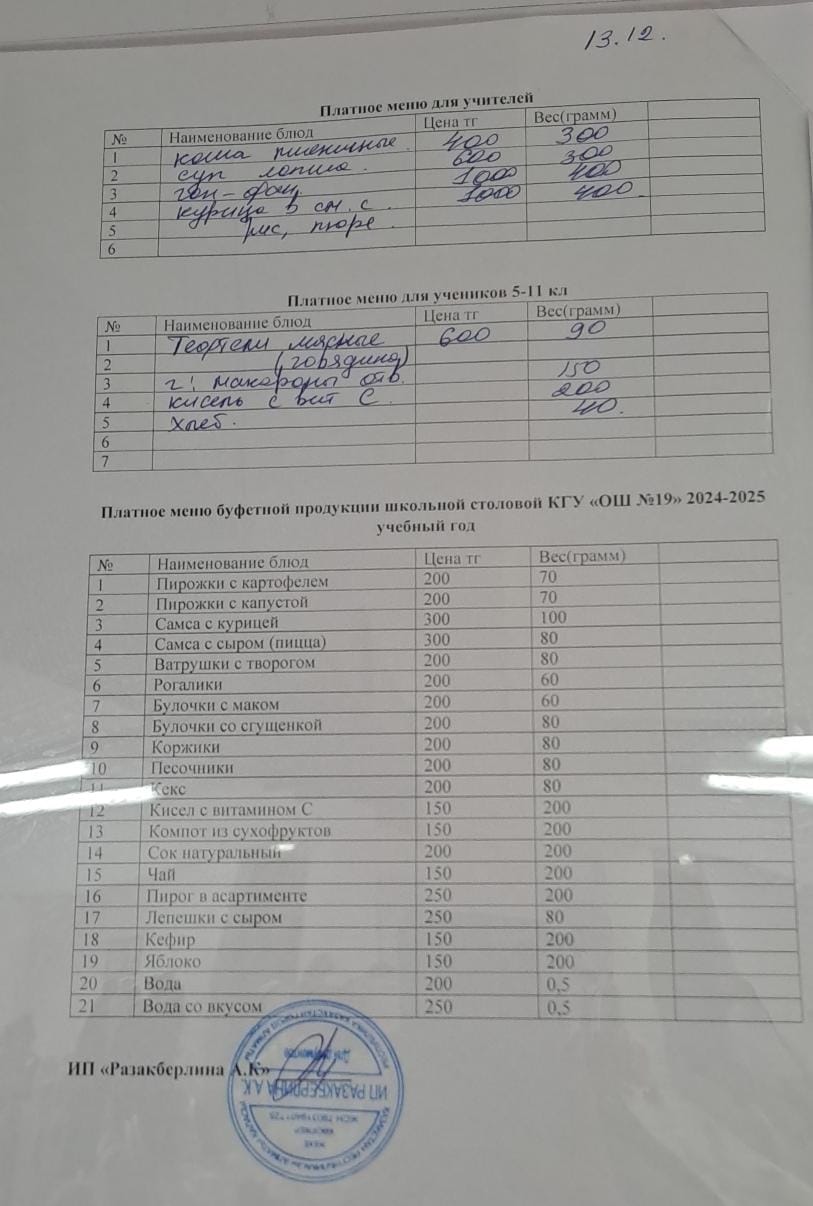 13.12.
Платное меню для учителей
№ Наименование блюд Цена тг Вес(грамм)
1 каша пшеничные 400 300
2 суп лапша 600 300
3 ган-фан 1000 400
4 курица в см. с. 1000 400
5 рис, пюре
6
Платное меню для учеников 5-11 кл
№ Наименование блюд Цена тг Вес(грамм)
1 Тефтели мясные 600 90
2 (говядина)
3 г: макароны отв. 150
4 кисель с вит С 200
5 хлеб. 40.
6
7
Платное меню буфетной продукции школьной столовой КГУ «ОШ №19» 2024-2025
учебный год
№ Наименование блюд Цена тг Вес(грамм)
1 Пирожки с картофелем 200 70
2 Пирожки с капустой 200 70
3 Самса с курицей 300 100
4 Самса с сыром (пицца) 300 80
5 Ватрушки с творогом 200 80
6 Рогалики 200 60
7 Булочки с маком 200 60
8 Булочки со сгущенкой 200 80
9 Коржики 200 80
10 Песочники 200 80
11 Кекс 200 80
12 Кисел с витамином С 150 200
13 Компот из сухофруктов 150 200
14 Сок натуральный 200 200
15 Чай 150 200
16 Пирог в асартименте 250 200
17 Лепешки с сыром 250 80
18 Кефир 150 200
19 Яблоко 150 200
20 Вода 200 0,5
21 Вода со вкусом 250 0,5
ИП «Разакберлина А.К»
Для документов
ИП РАЗАКБЕРЛИНА А.К.